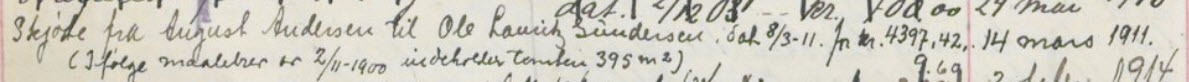 dat. 2/12 03 -- kr. 400.00 29 mai
Skjøte fra August Andersen til Ole Lauritz Gundersen. dat. 8/3-11. for kr. 4397,42,. 14 mars 1911.
(Ifølge maalebrev av 2/11-1900 indeholder tomten 395 m2)
9.69 1914